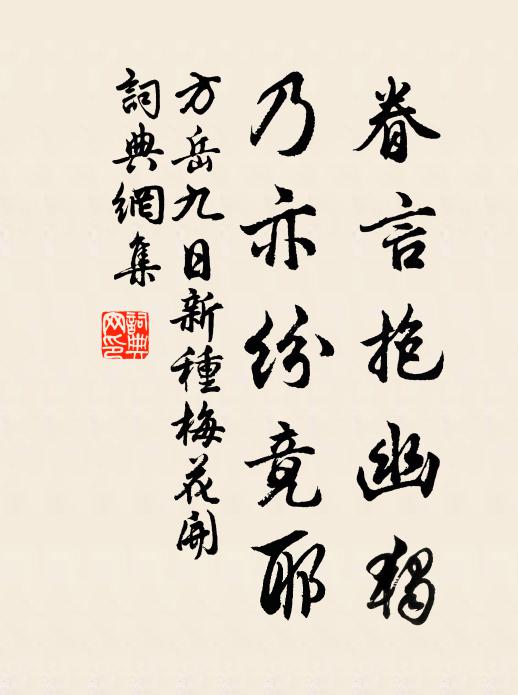 眷言抱幽獨
乃亦紛竟耶
方岳九日新種梅花開
詞典網集
詞典
网印